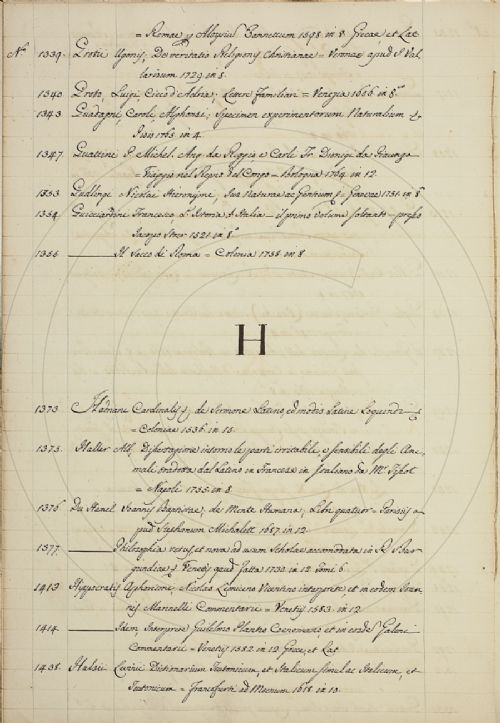 = Romae Aloysius Zannettum 1598 in 8 Grecae et Lat
N.º 1339. Ugonis; De veritate Religionis Christianae = apud
1729 in 8.
1340 Luigi, Cieco d'Adria; Lettere Familiari = Venezia 1606 in 8º
1343 Guadagni, Caroli, Alphonsi; Specimen experimentorum Naturalium
Pisis 1765 in 4.
1347. P. Michel. Ang. da Reggio e Carli Fr. Dionigi da Piacenza
= Viaggio nel Regno del Congo = Bologna in 12
1353 Nicolai Hieronymi, Jus Naturae ac Gentium 1751 in 8
1354. Guicciardini Francesco, Istoria d'Italia = il primo volume soltanto =
Jacopo 1521 in 8º
1355 Il Sacco di Roma = Colonia 1758 in 8
H
1373 Hadriani Cardinalis; de Sermone Latino, ed modis Latine Loquendi
= Coloniae 1536 in
1375. Haller Alb, Dissertazione intorno le parti irritabili, e sensibili degli Ani-
mali tradotta dal Latino in Francese in Italiano da Mr Tissot
= Napoli 1755 in 8
1376 Du Hamel Joannis Baptistae, de Mente Humana; Libri quatuor = Parisiis a-
pud Michallet 1687 in 12
1377 Philosophia vetus et nova ad usum Scholae accomodata in
Venetiis apud 1730 in 12 Tomi 6
1413 Hippocratis Aphorismi, Nicolao Leoniceno Vicentino interprete, et in eosdem Joan-
nis Marinelli Commentarii = Venetiis 1583 in 12
1414 Idem, Interprete Gulielmo Plantio Cenomano, et in eosdem Galeni
Commentarii = Venetiis 1552 in 12 Grece, et Lat
1438. Hulsii Levini Dictionarium Teutonicum, et Italicum simul ac Italicum, et
Teutonicum = Francofurti ad Moenum 1618 in